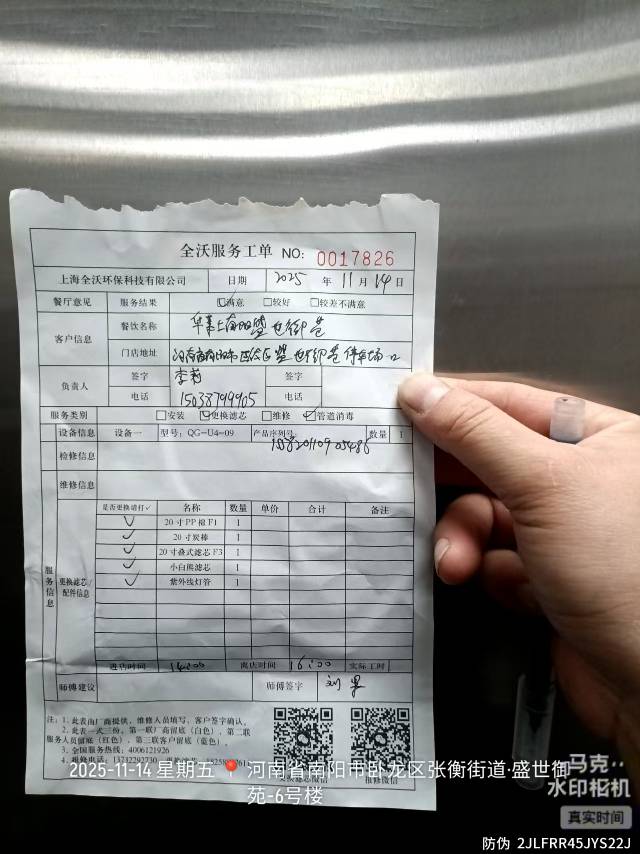 全沃服务工单 NO: 0017826
上海全沃环保科技有限公司 日期 2025 年 11 月 14 日
餐厅意见 服务结果 ☑满意 □较好 □较差不满意
客户信息 餐饮名称 南阳盛世御苑
门店地址 盛世御苑停车场口
负责人 签字 李莉 签字
电话 15033799905 电话
服务类别 □安装 ☑更换滤芯 □维修 ☑管道消毒
设备信息 设备一 型号: QG-U4-09 产品序列号 数量 1
检修信息
维修信息
服务信息 更换滤芯/配件信息
是否更换请打✓ 名称 数量 单价 合计 备注
✓ 20寸PP棉F1 1
✓ 20寸炭棒 1
✓ 20寸叠式滤芯F3 1
✓ 小白熊滤芯 1
✓ 紫外线灯管 1
进店时间 14:00 离店时间 16:00 实际工时
师傅建议 师傅签字 刘
注: 1. 此表由厂商提供, 维修人员填写, 客户签字确认。
2. 此表一式三份, 第一联厂商留底(白色), 第二联
服务人员留底(红色), 第三联客户留底(蓝色)。
3. 全国服务热线: 4006121926
4. 报修电话: 13732292730
报修微信
2025-11-14 星期五 河南省南阳市卧龙区张衡街道·盛世御
苑-6号楼
马克
水印相机
真实时间
防伪 2JLFRR45JYS22J